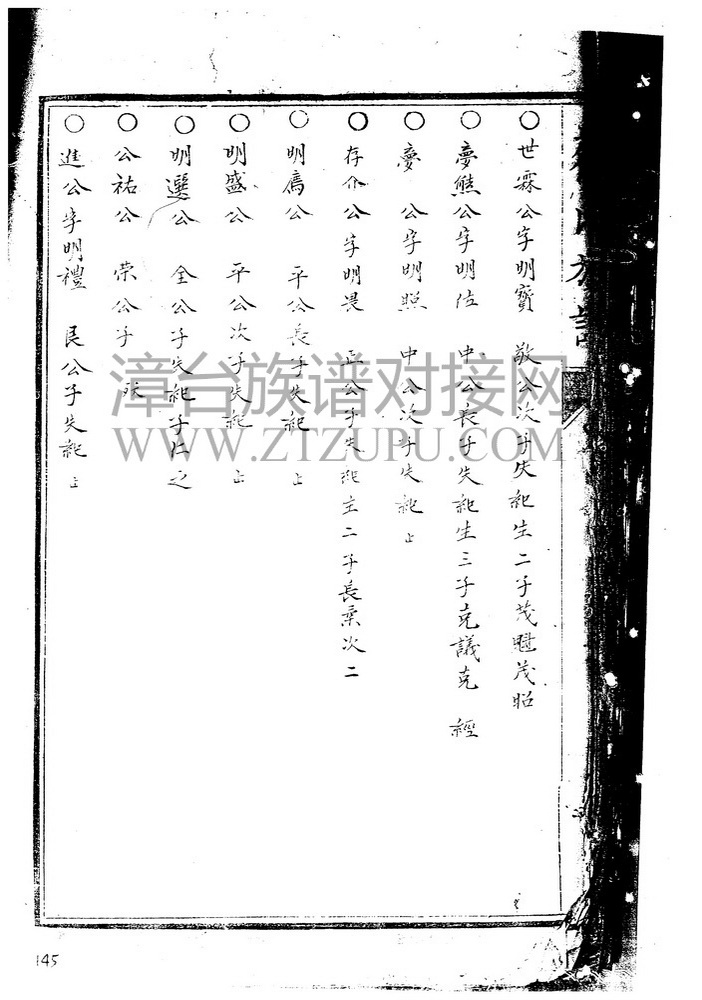 ○世霖公字明寶 敬公次子失紀生二子茂 茂昭
○夢熊公字明佐 中公長子失紀生三子克議克 經
○夢 公字明照 中公次子失紀 止
○存介公字明畏 正公子失紀生二子長 次二
○明 公 平公長子失紀 止
○明盛公 平公次子失紀 止
○明選公 全公子失紀子 之
○公祐公 榮公子
○進公字明禮 良公子失紀 止
族譜
漳台族谱对接网
WWW.ZTZUPU.COM
145